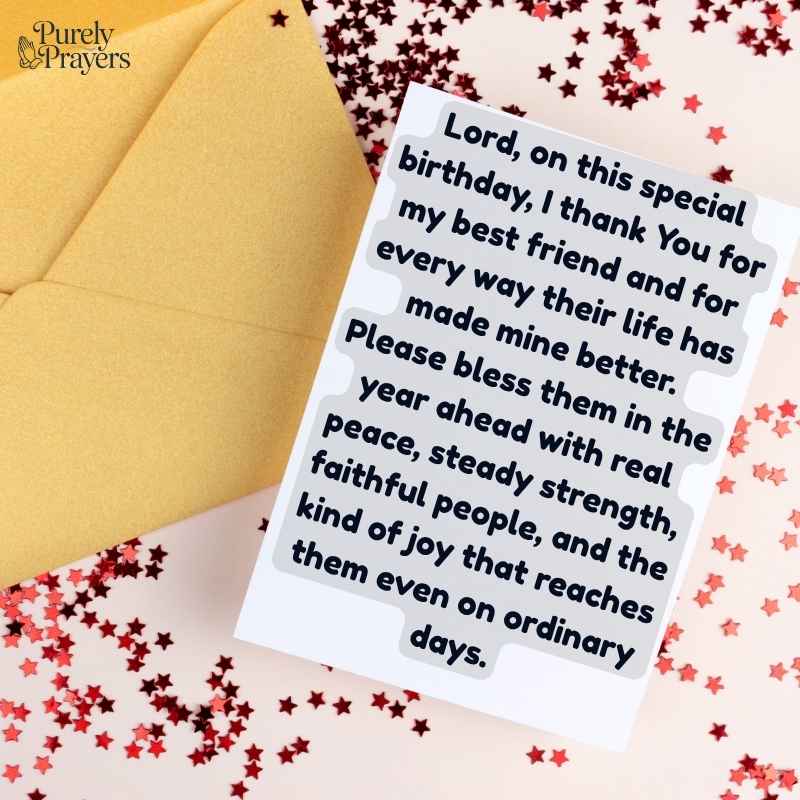 Purely
Prayers
Lord, on this special
birthday, I thank You for
my best friend and for
every way their life has
made mine better.
Please bless them in the
year ahead with real
peace, steady strength,
faithful people, and the
kind of joy that reaches
them even on ordinary
days.